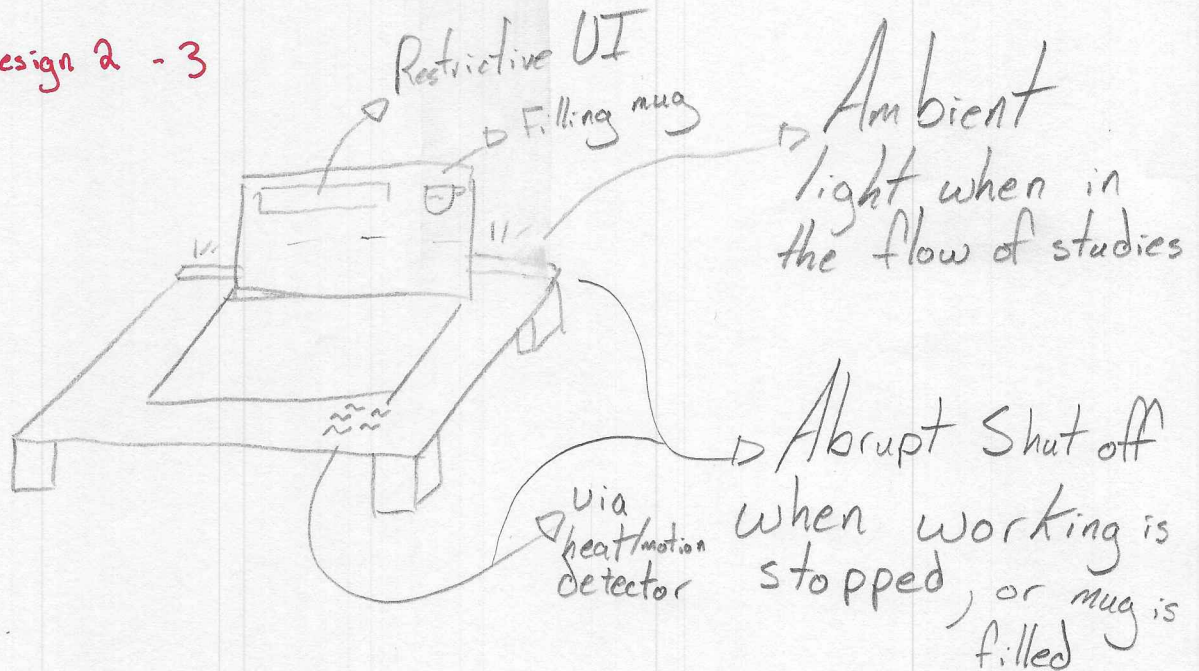 esign 2 - 3
Restrictive UI
Filling mug
Ambient
light when in
the flow of studies
Abrupt Shut off
when working is
stopped, or mug is
filled
via
heat/motion
detector